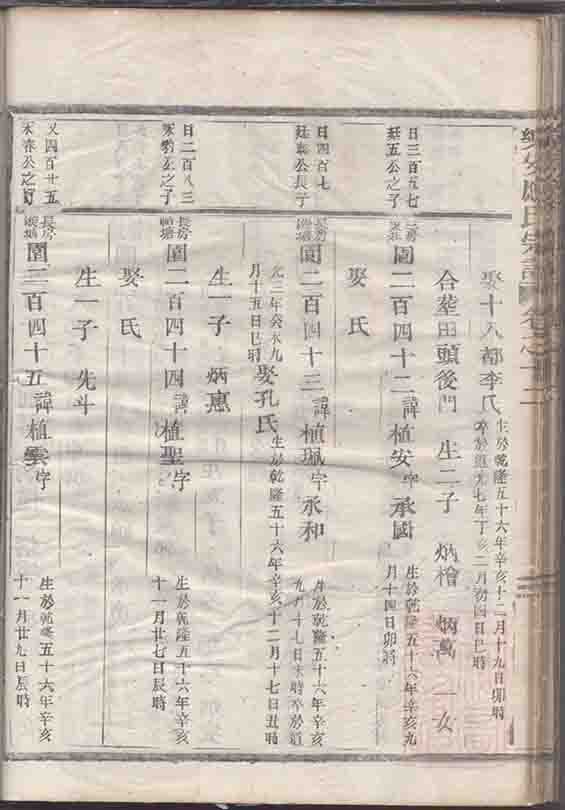 氏宗譜 卷之十二
娶十八都李氏
生於乾隆五十六年辛亥十二月十九日卯時
卒於道光七年丁亥二月初四日巳時
合塟田頭後門 生二子 炳檜 炳萬 一女
日三百五七
廷五公之子
園二百四十二 諱植安 字承國
生於乾隆五十六年辛亥九
月十四日卯時
娶氏
日四百七
公長子
長房
園二百四十三 諱植珮 字承和
生於乾隆五十六年辛亥
九月十七日未時卒於道
光三年癸未九
月十五日巳時
娶孔氏
生於乾隆五十六年辛亥十二月十七日丑時
生一子 炳惠
日二百八三
公之子
長房
塘
園二百四十四 諱植聖 字
生於乾隆五十六年辛亥
十一月廿七日辰時
娶氏
生一子 先斗
又四百廿五
公之子
長房
塘
園二百四十五 諱植雲 字
生於乾隆五十六年辛亥
十一月廿九日辰時